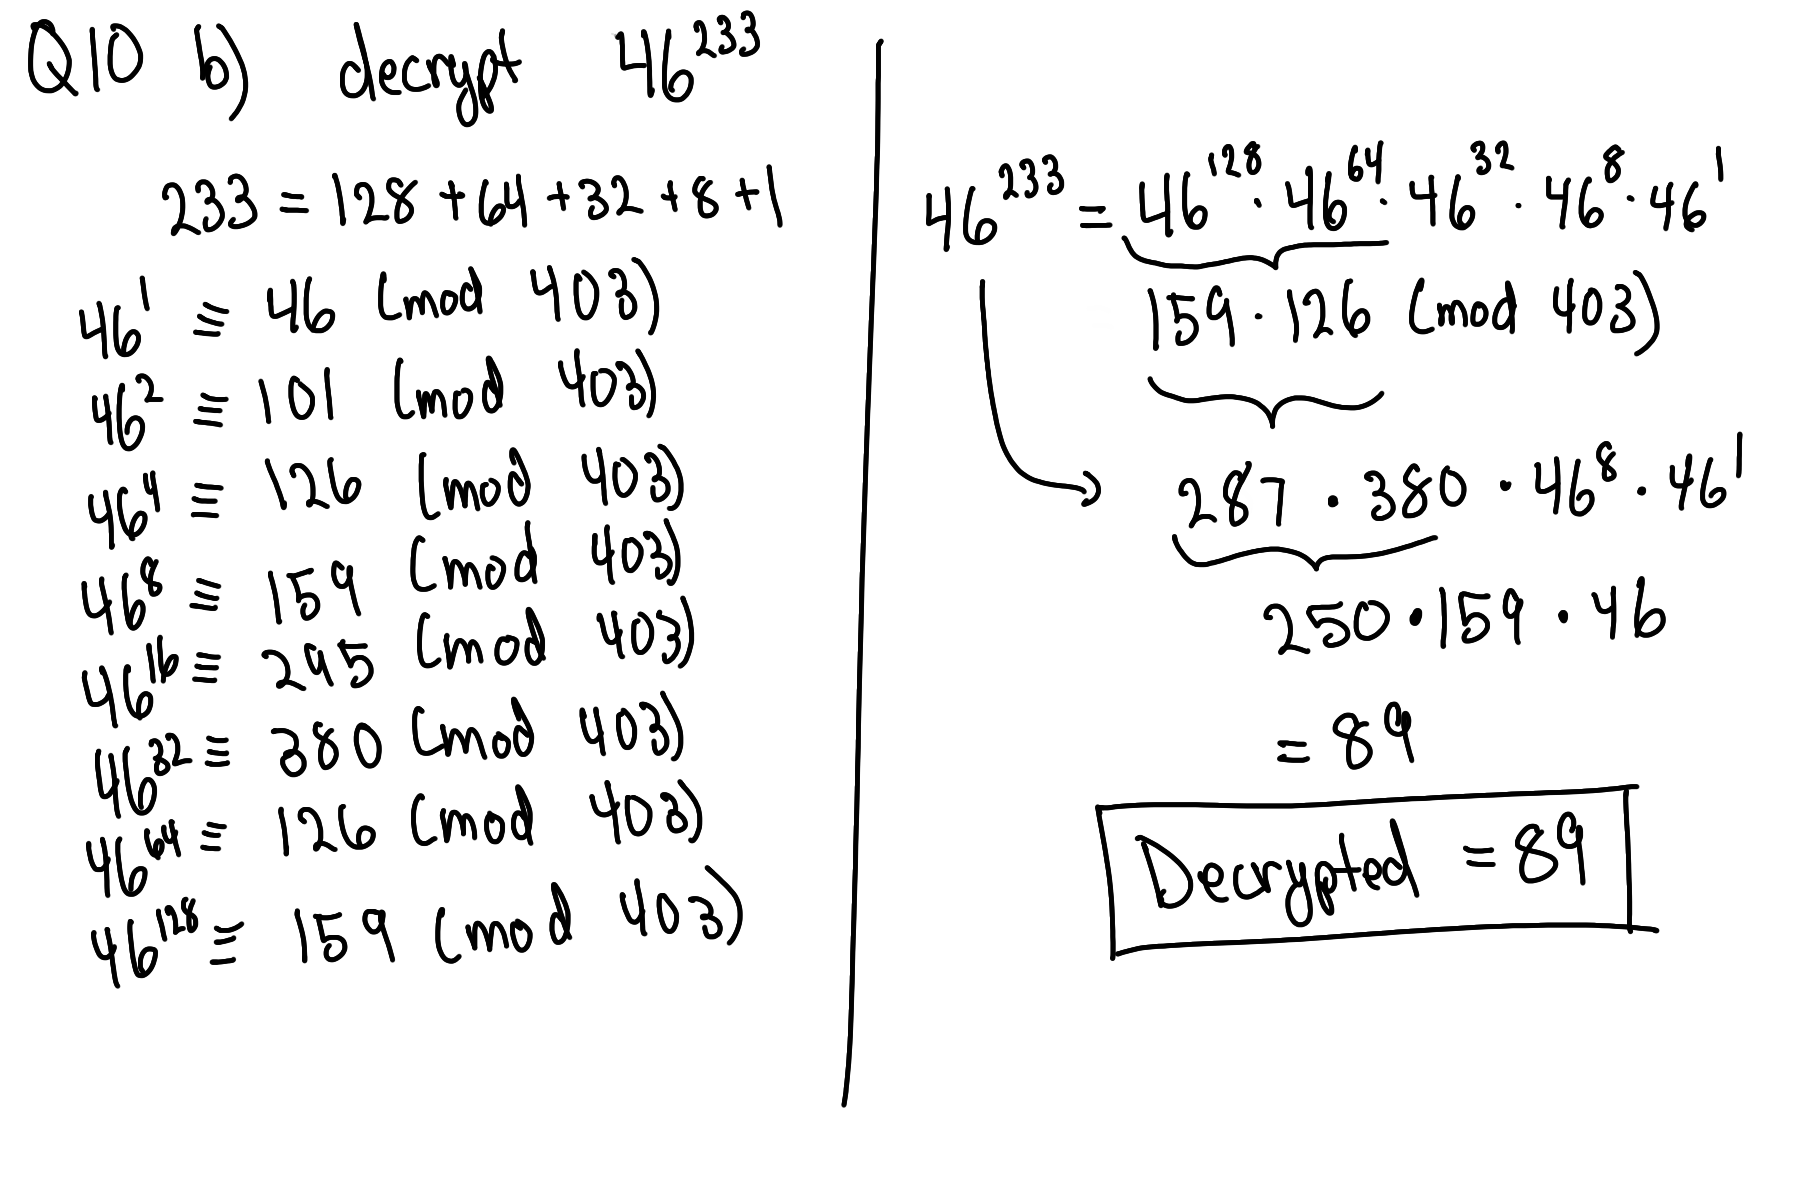 Q10 b) decrypt 46^233
233 = 128 + 64 + 32 + 8 + 1
46^1 ≡ 46 (mod 403)
46^2 ≡ 101 (mod 403)
46^4 ≡ 126 (mod 403)
46^8 ≡ 159 (mod 403)
46^16 ≡ 295 (mod 403)
46^32 ≡ 380 (mod 403)
46^64 ≡ 126 (mod 403)
46^128 ≡ 159 (mod 403)
46^233 = 46^128 · 46^64 · 46^32 · 46^8 · 46^1
159 · 126 (mod 403)
287 · 380 · 46^8 · 46^1
250 · 159 · 46
= 89
Decrypted = 89